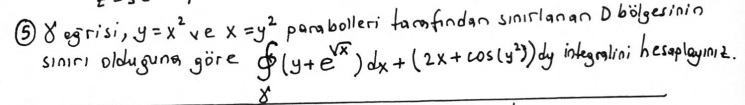 ⑤ γ eğrisi, y=x² ve x=y² parabolleri tarafından sınırlanan D bölgesinin
sınırı olduğuna göre ∮(y+e^√x)dx+(2x+cos(y²))dy integralini hesaplayınız.
γ